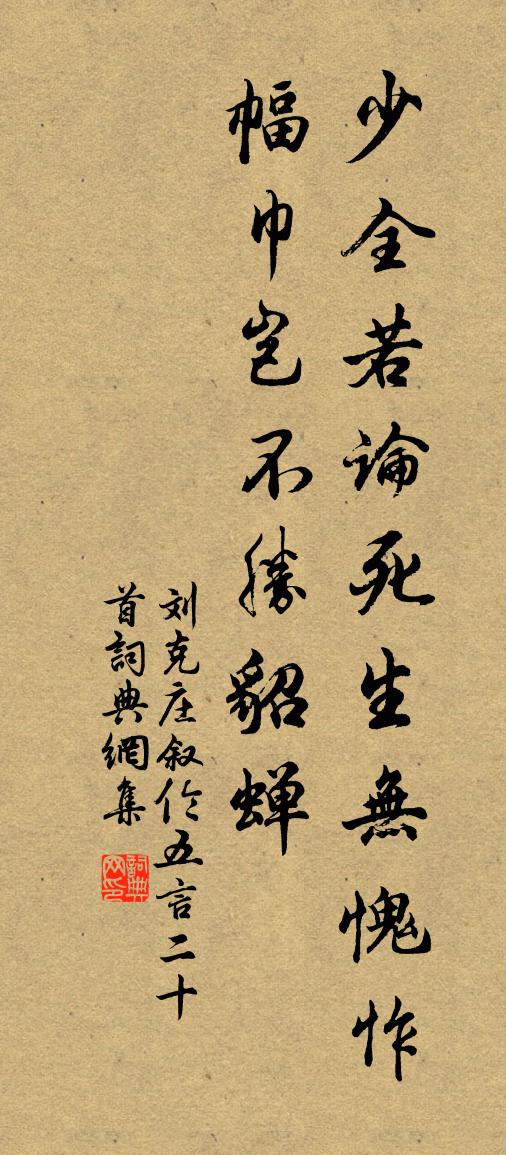 少全若論死生無愧怍
幅巾岂不勝貂蝉
刘克庄叙伦五言二十
首詞典網集
詞典
网印